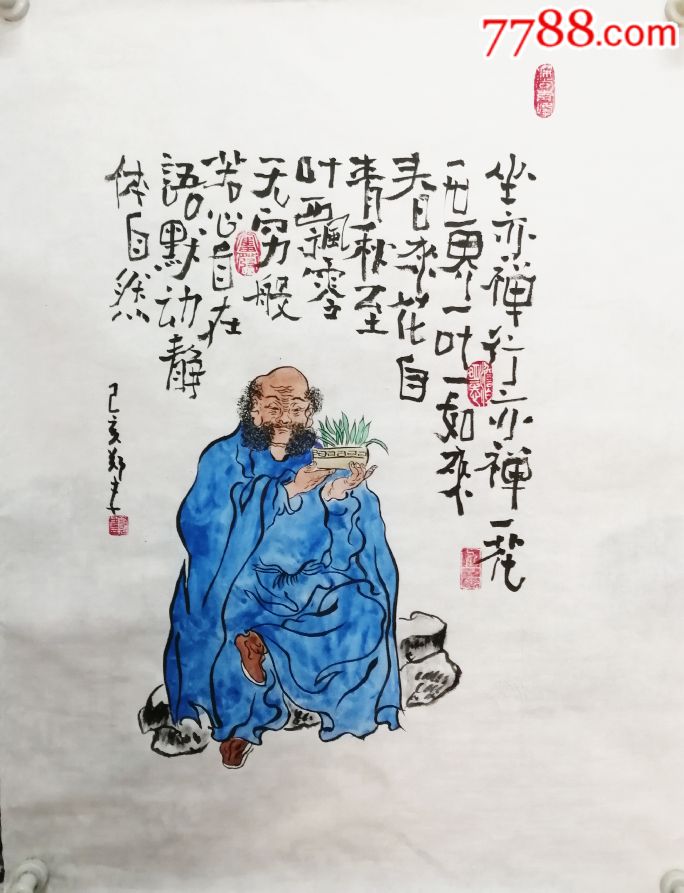 7788.com
坐亦禅行亦禅一花
世界一叶一如来
春来花自
青秋至
叶飄零
无穷般
若心自在
語默动静
体自然
己亥郑